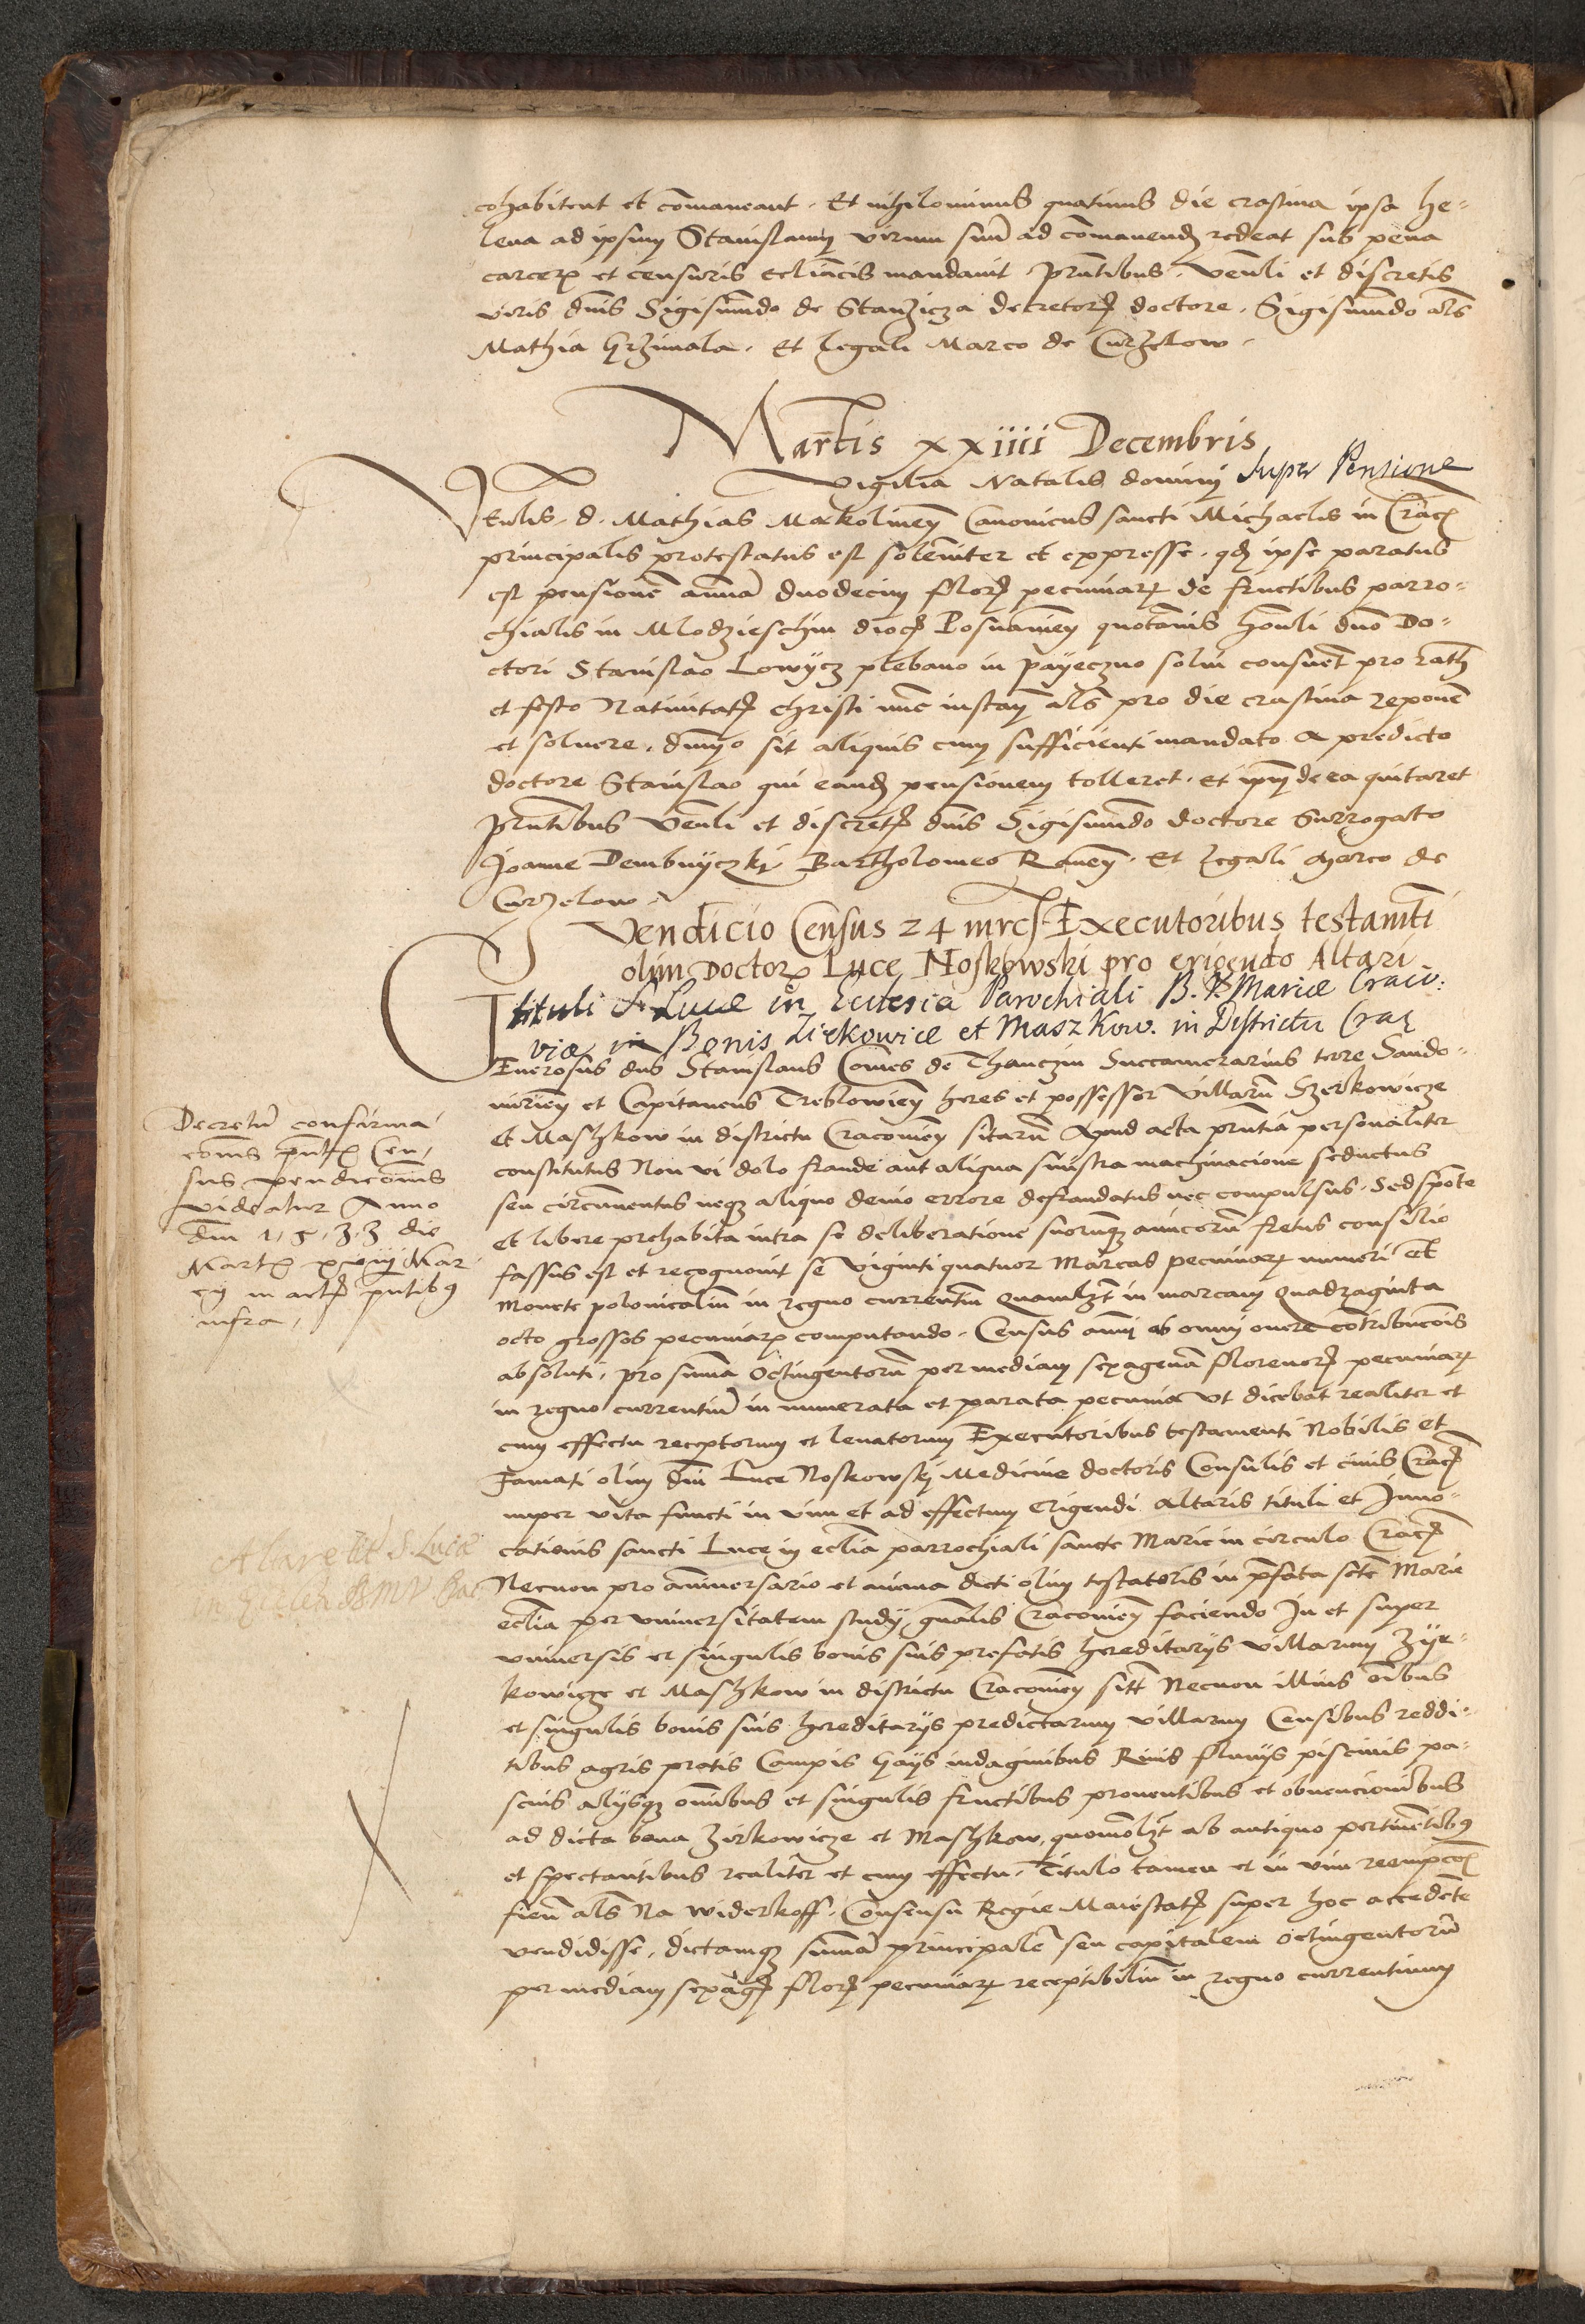 cohabitent et com̄aneant. Et nihilominus quatinus die crastina ipsa He-
lena ad ipsum Stanislaum virum suū ad com̄anend redeat sub pena
carceris et censuris eccliasticis mandavit. Pn̄tibus. Venli et discretis
viris dnis Sigismundo de Stanzicza decretorum doctore. Sigismundo als
Mathia Grzimala. Et legali Marco de Curzelow.
Martis xxiiii Decembris
Vigilia Natalis domini Super Pensione
Venlis. d. Mathias Canonicus sancti Michaelis in Crac
principalis protestatus est solenniter et expresse. qd ipse paratus
est pensionē annuā duodecim flor pecuniar de fructibus parro-
chialis in Mlodzieschin dioc Posnanien quotannis Honli dno Do-
ctori Stanislao Lowycz plebano in Payeczno solui consuet pro rath
et festo Natiuitatis christi nunc instan als pro die crastina reponē
et soluere. dummodo sit aliquis cum sufficienti mandato a predicto
doctore Stanislao qui eand pensionem tolleret. et ipm de ea quitaret
Pn̄tibus Venli et discretis dnis Sigismundo doctore Surrogato
Joanne Dembnyczky Bartholomeo. Et legali Marco de
Curzelow.
Vendicio Census 24 mrcs Executoribus testamti
olim Doctoris Luce Noskowski pro erigendo Altari
tituli S. Lucæ in Ecclesia Parochiali B. V. Mariæ Craco:
viæ in Bonis Zirkowice et Maszkow. in Districtu Crac
Generosus dns Stanislaus Comes de Thanczin Succamerarius terre Sando-
mirien et Capitaneus Treblowien heres et possessor villarū Szerkowicze
et Maszkow in districtu Cracouien sitarū Apud acta pn̄tia personaliter
constitutus Non vi dolo fraude aut aliqua sinistra machinacione seductus
seu circumuentus neqz aliquo deuio errore defraudatus nec compulsus. Sed sponte
et libere prehabita intra se deliberatione suorumqz amicorū fretus consilio
fassus est et recognouit se viginti quatuor Marcas pecuniar numeri et
Monete polonicaliū in regno currentiū quamlzt in marcam Quadraginta
octo grossos pecuniar computando. Census annui ab omni onere contribucōis
absoluti. pro summa Octingentorū per mediam sexagenā florenorum pecuniar
in regno currentiū in numerata et parata pecunia vt dicebat realiter et
cum effectu receptorum et leuatorum Executoribus testamenti Nobilis et
Famati olim dni Luce Noskowsky Medicine doctoris Consulis et ciuis Crac
nuper vita functi in vim et ad effectum Erigendi altaris tituli et Inuo-
cationis sancti Luce in ecclia parrochiali sancte Marie in circulo Crac
Necnon pro anniuersario et anima dicti olim testatoris in p̄fata scte Marie
ecclia per vniuersitatem studij gn̄alis Cracouien faciendo In et super
vniuersis et singulis bonis suis prefatis hereditarijs villarum Zyr-
kowicze et Maszkow in districtu Cracouien sitt Necnon illius oībus
et singulis bonis suis hereditarijs predictarum villarum Censibus reddi-
tibus agris pratis Campis Gays indaginibus Riuis fluuijs piscinis pa-
scuis alijsqz om̄ibus et singulis fructibus prouentibus et obuencionibus
ad dicta bona Zirkowicze et Maszkow. quomolzt ab antiquo pertinentibus
et spectantibus realiter et cum effectu. Titulo tamen et in vim reempcōis
fiend als Na widerkoff. Consensu Regie Maiestatis super hoc accedente
vendidisse. dictamqz summā principalē seu capitalem Octingentorū
per mediam sexag flor pecuniar receptibiliū in regno currentium
Decretū confirma
cōnis pn̄tis Cen-
sus vendicōnis
videatur Anno
dni 1.5.3.3 die
Martis xviij Mar
cij in actis pn̄tibus
infra.
Altare tit. S. Lucæ
in Eccles. B.M.V. Crac